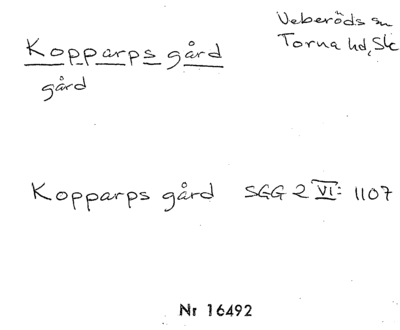 Kopparps gård
gård
Veberöds sn
Torna hd, Sk
Kopparps gård SGG 2 VI: 1107
Nr 16492